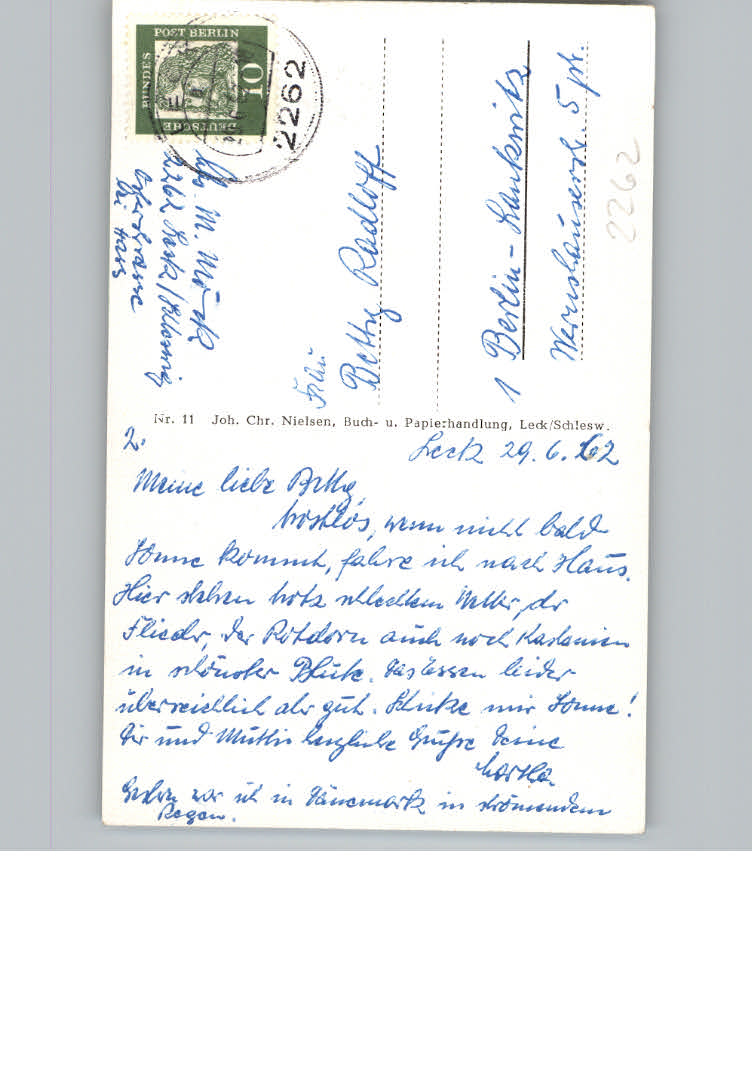 DEUTSCHE BUNDES POST BERLIN
10
2262
M. Mörk
2262 Leck/Schleswig
bei Hans
Frau
Betty Radloff
1 Berlin-Lankwitz
Wernshauserstr. 5 ptr.
2262
Nr. 11 Joh. Chr. Nielsen, Buch- u. Papierhandlung, Leck/Schlesw.
2.
Leck 29.6.62
Meine liebe Betty,
trostlos, wenn nicht bald
Sonne kommt, fahre ich nach Haus.
Hier stehen trotz schlechtem Wetter, der
Flieder, der Rotdorn auch noch Kastanien
in schönster Blüte. Das Essen leider
überreichlich aber gut. Schicke mir Sonne!
Dir und Mutti herzliche Grüße Deine
Martha.
Gestern war ich in Dänemark in strömendem
Regen.